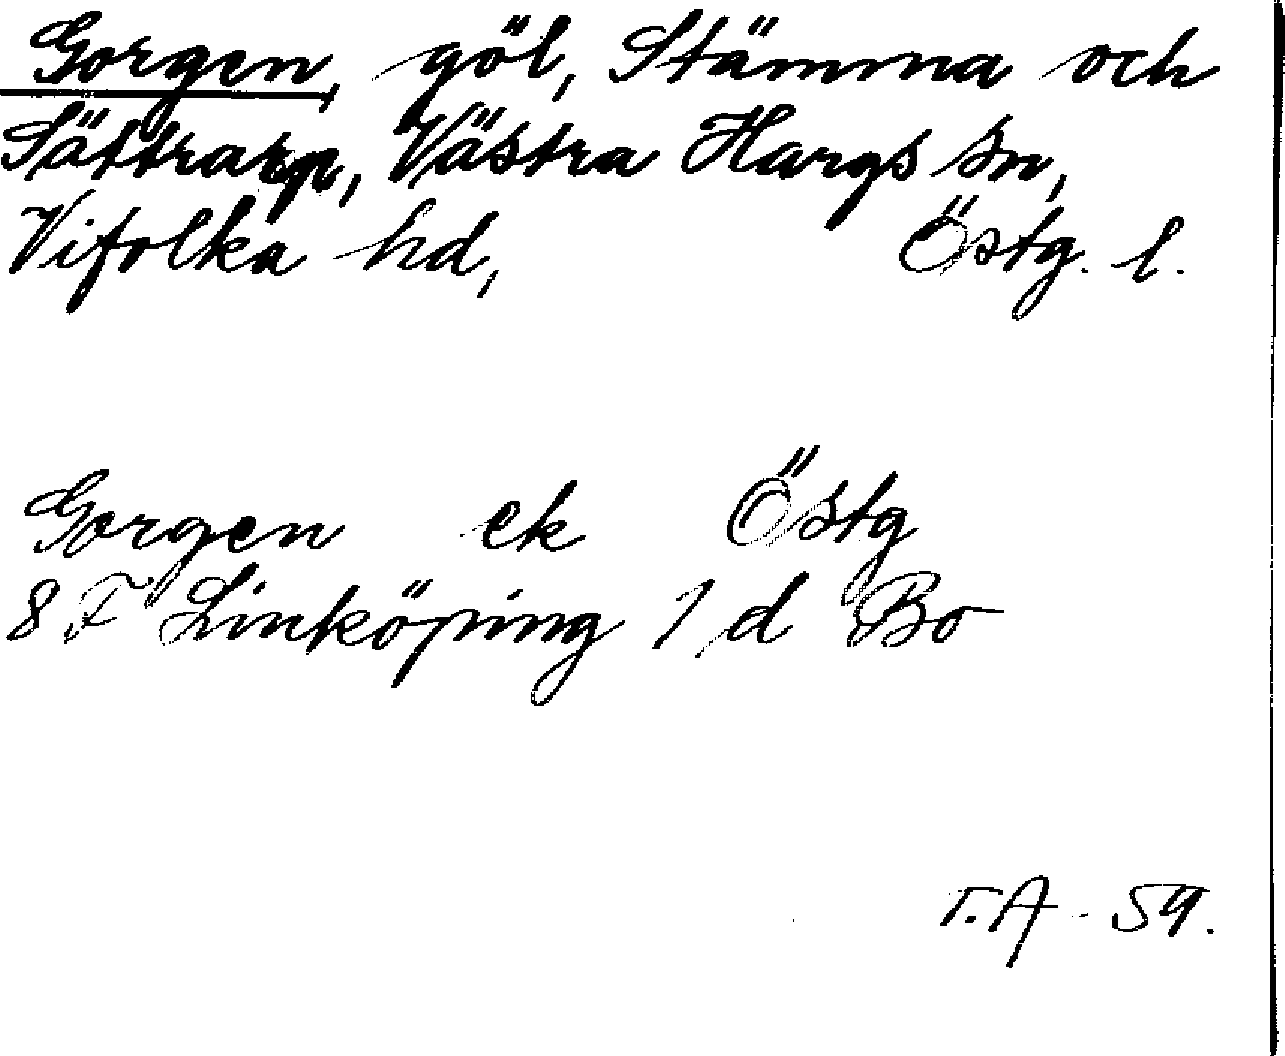 Gorgen, göl, Stämma och
Sättrarp, Västra Hargs sn,
Vifolka hd, Östg. l.
Gorgen ek Östg
8 F Linköping 1 d Bo
T.A - 59.